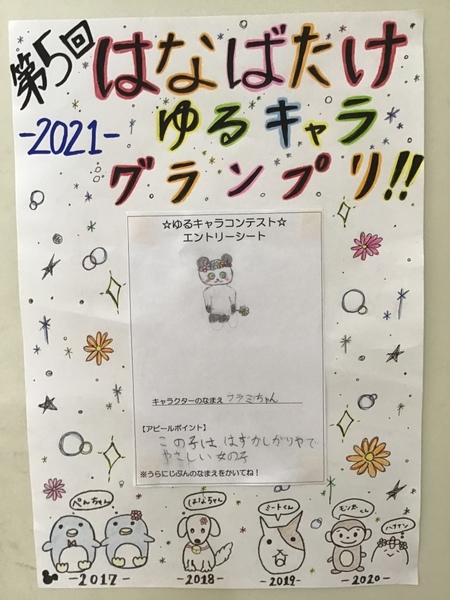 第5回
はなばたけ
-2021-
ゆるキャラ
グランプリ!!
☆ゆるキャラコンテスト☆
エントリーシート
キャラクターのなまえ フラミちゃん
【アピールポイント】
この子は はずかしがりやで
やさしい女の子
※うらにじぶんのなまえをかいてね!
ぺんちゃん
はなちゃん
ミートくん
モンタくん
ハナサン
-2017-
-2018-
-2019-
-2020-